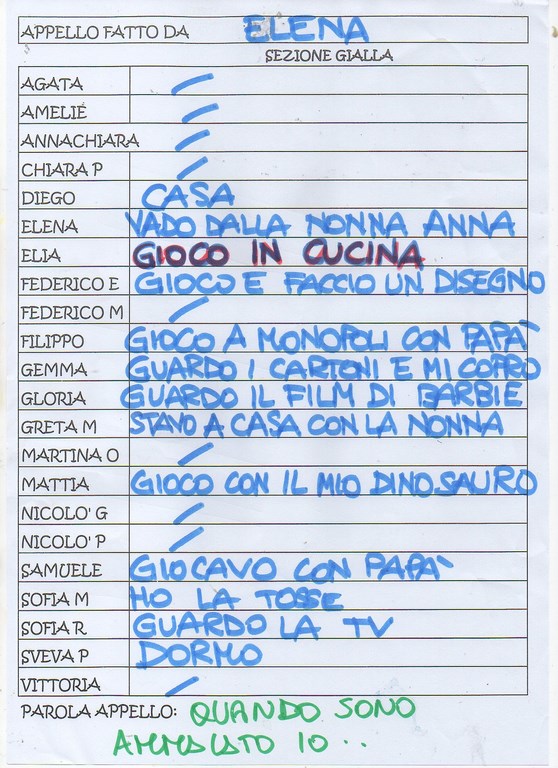 APPELLO FATTO DA ELENA
SEZIONE GIALLA
AGATA /
AMELIÉ /
ANNACHIARA /
CHIARA P /
DIEGO CASA
ELENA VADO DALLA NONNA ANNA
ELIA GIOCO IN CUCINA
FEDERICO E GIOCO E FACCIO UN DISEGNO
FEDERICO M /
FILIPPO GIOCO A MONOPOLI CON PAPÀ
GEMMA GUARDO I CARTONI E MI COPRO
GLORIA GUARDO IL FILM DI BARBIE
GRETA M STAVO A CASA CON LA NONNA
MARTINA O /
MATTIA GIOCO CON IL MIO DINOSAURO
NICOLO' G /
NICOLO' P /
SAMUELE GIOCAVO CON PAPA'
SOFIA M HO LA TOSSE
SOFIA R GUARDO LA TV
SVEVA P DORMO
VITTORIA /
PAROLA APPELLO: QUANDO SONO
AMMALATO IO ..